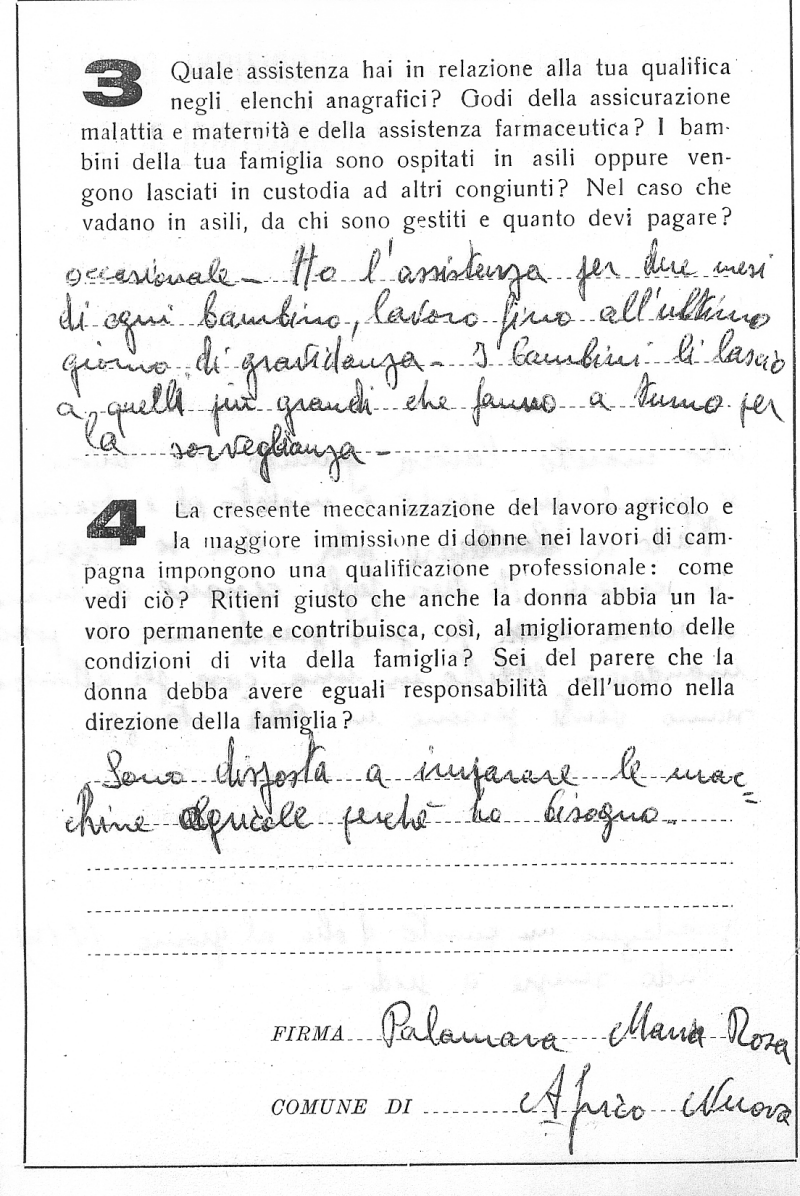 3 Quale assistenza hai in relazione alla tua qualifica
negli elenchi anagrafici? Godi della assicurazione
malattia e maternità e della assistenza farmaceutica? I bam-
bini della tua famiglia sono ospitati in asili oppure ven-
gono lasciati in custodia ad altri congiunti? Nel caso che
vadano in asili, da chi sono gestiti e quanto devi pagare?
occasionale - Ho l'assistenza per due mesi
di ogni bambino, lavoro fino all'ultimo
giorno di gravidanza - I bambini li lascio
a quelli più grandi che fanno a turno per
la sorveglianza -
4 La crescente meccanizzazione del lavoro agricolo e
la maggiore immissione di donne nei lavori di cam-
pagna impongono una qualificazione professionale: come
vedi ciò? Ritieni giusto che anche la donna abbia un la-
voro permanente e contribuisca, così, al miglioramento delle
condizioni di vita della famiglia? Sei del parere che la
donna debba avere eguali responsabilità dell'uomo nella
direzione della famiglia?
Sono disposta a imparare le mac=
chine agricole perché ho bisogno.
FIRMA Palamara Maria Rosa
COMUNE DI Africo Nuova